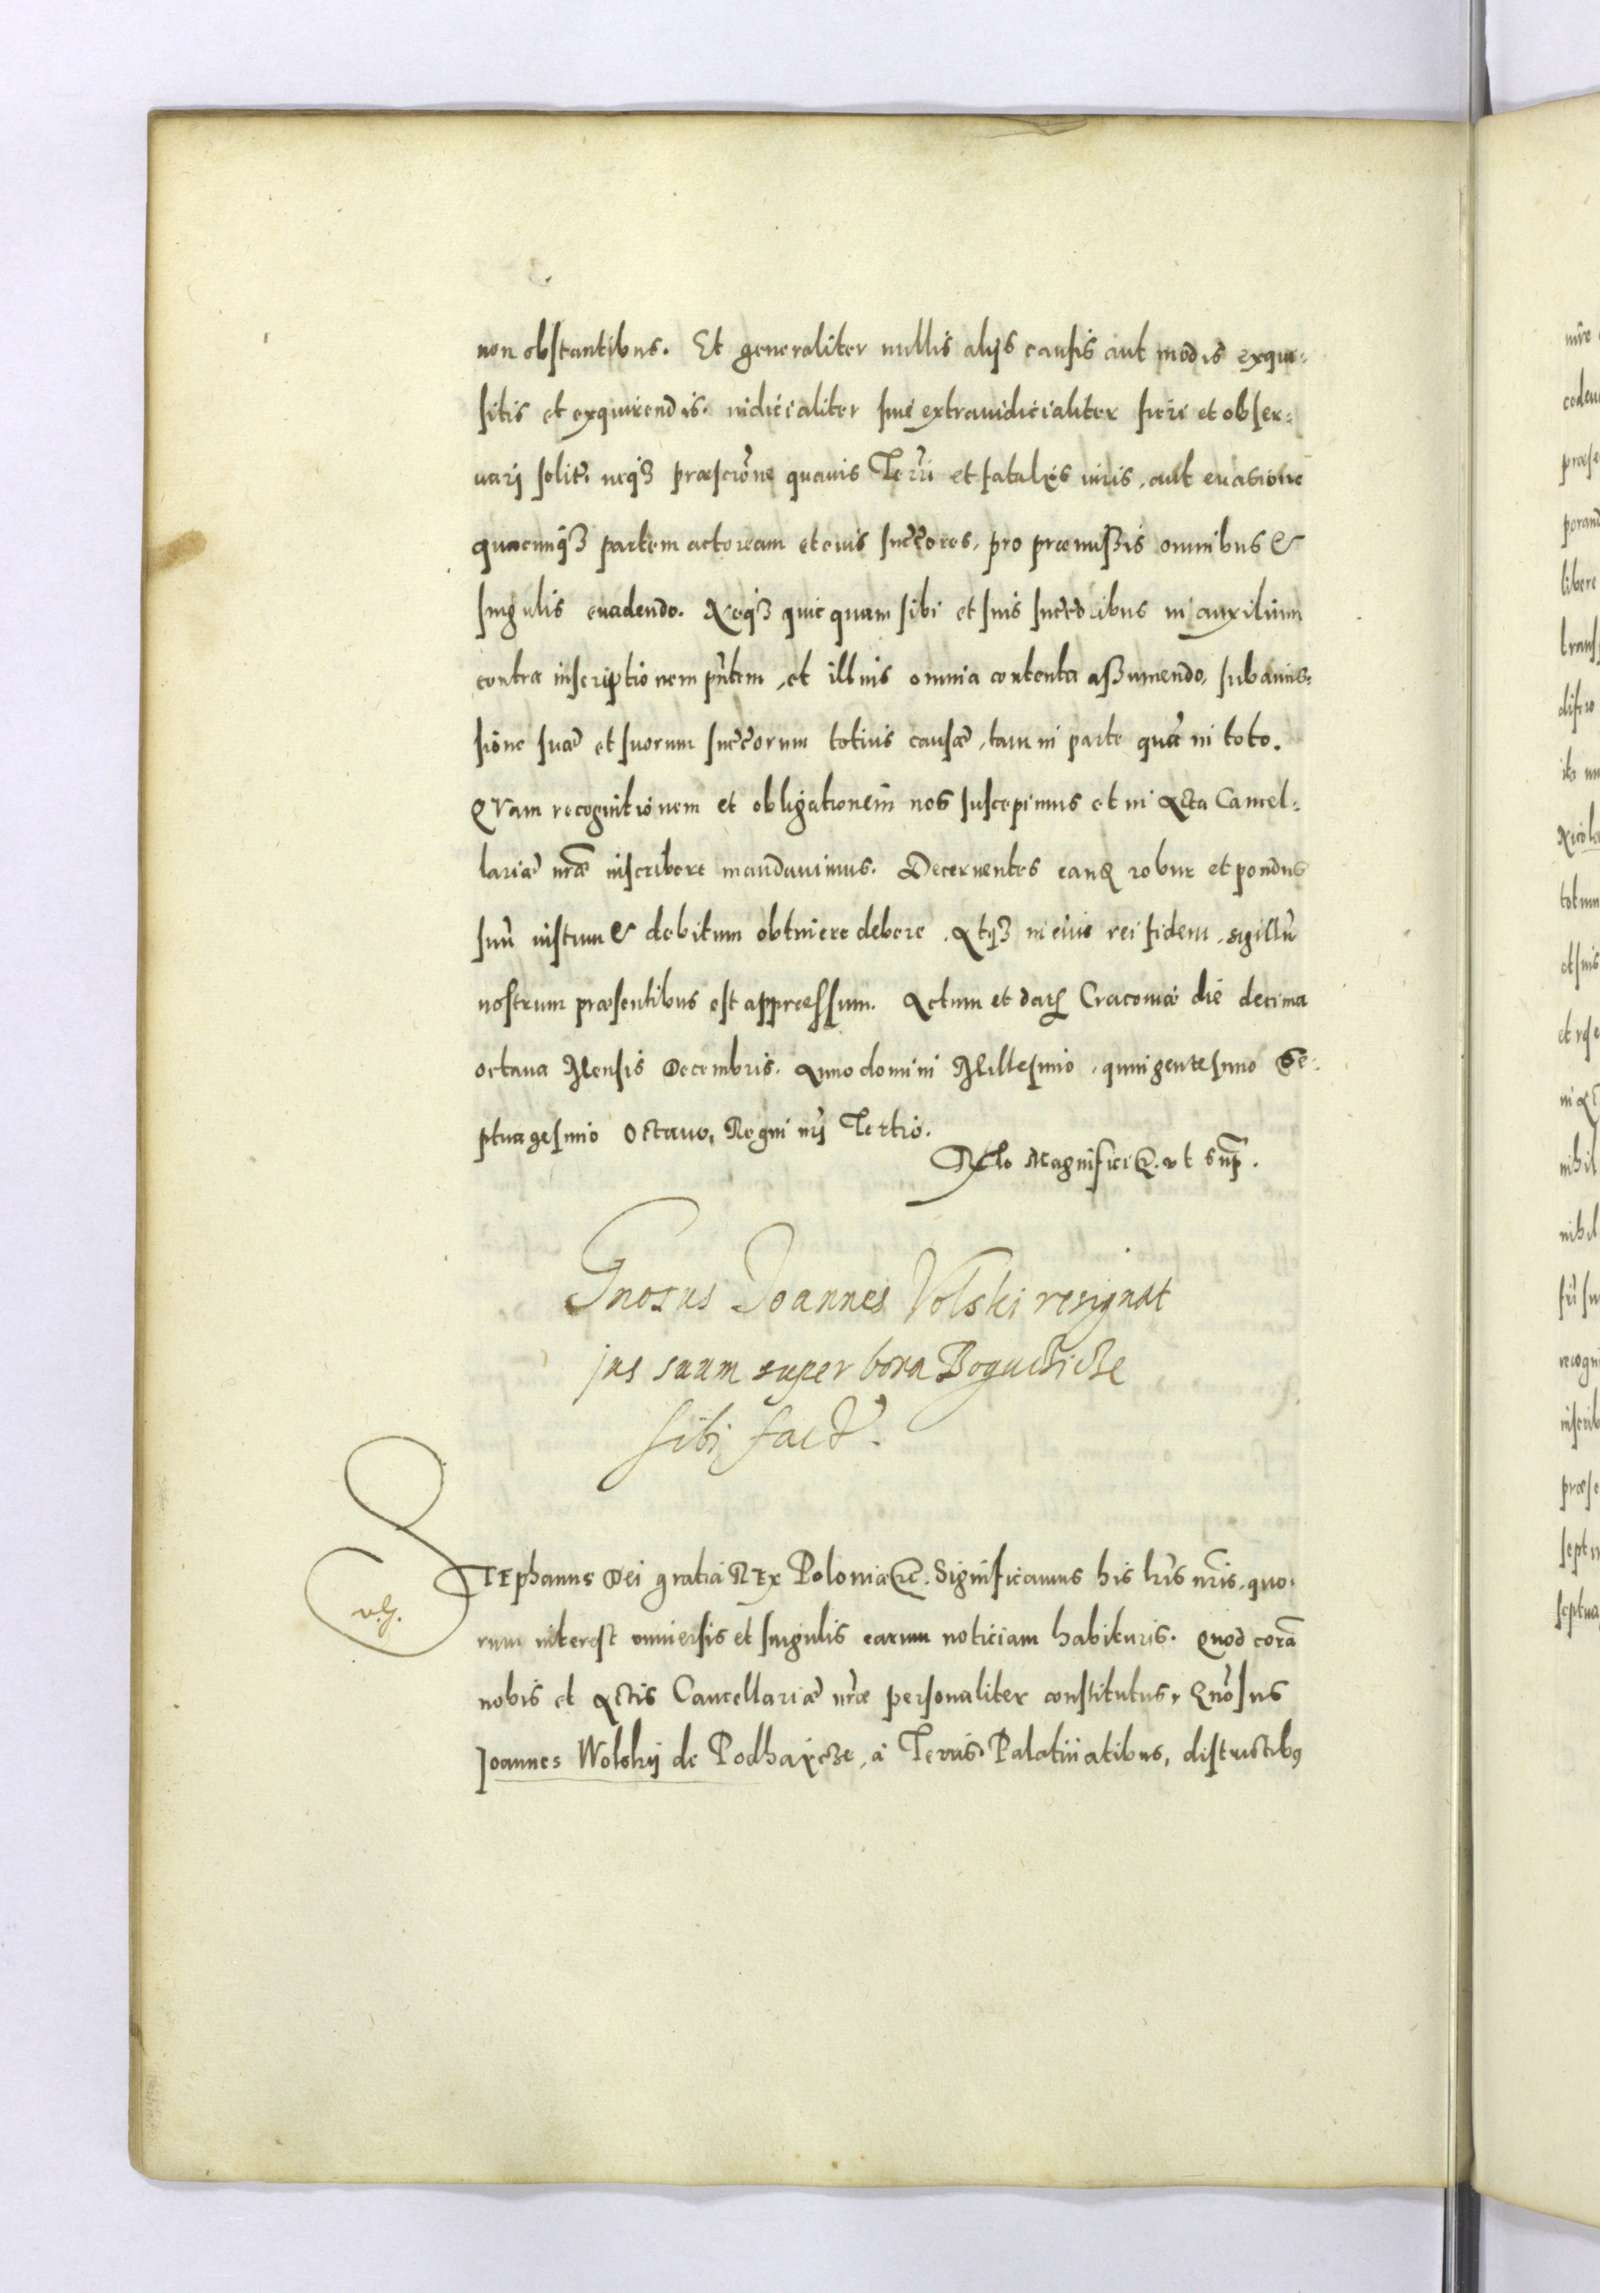 non obstantibus. Et generaliter nullis alijs causis aut modis exqui-
sitis et exquirendis. iudicialiter siue extraiudicialiter fieri et obser-
uari solit. neqз præscrone quauis Terri et fatalis iuris, aut euasione
quacunqз partem actoream et eius succores, pro præmissis omnibus &
singulis euadendo. Neqз quicquam sibi et suis succoribus in auxilium
contra inscriptionem pntem, et illius omnia contenta assumendo, sub amis-
sione suæ et suorum succorum totius causæ, tam in parte quã in toto.
QVam recognitionem et obligationem nos suscepimus et in Acta Cancel-
lariæ nræ inscribere mandauimus. Decernentes eanq robur et pondus
suũ iustum & debitum obtinere debere. Atqз in eius rei fidem, sigillũ
nostrum præsentibus est appressum. Actum et datq Cracouiæ die decima
octaua Mensis Decembris. Anno domini Millesimo, quingentesimo Se-
ptuagesimo Octauo, Regni nri Tertio.
Rclo Magnifici &. vt sup.
Gnosus Joannes Volski resignat
jus suum super bona Boguchicze
sibi fact.
STEphanus Dei gratia REx Poloniæ &c. Significamus his lris nris, quo-
rum interest vniuersis et singulis earum noticiam habituris. Quod corã
nobis et Actis Cancellariæ nræ personaliter constitutus, Gnosus
Joannes Wolskij de Podhaycze, à Terris Palatinatibus, districtibꝯ